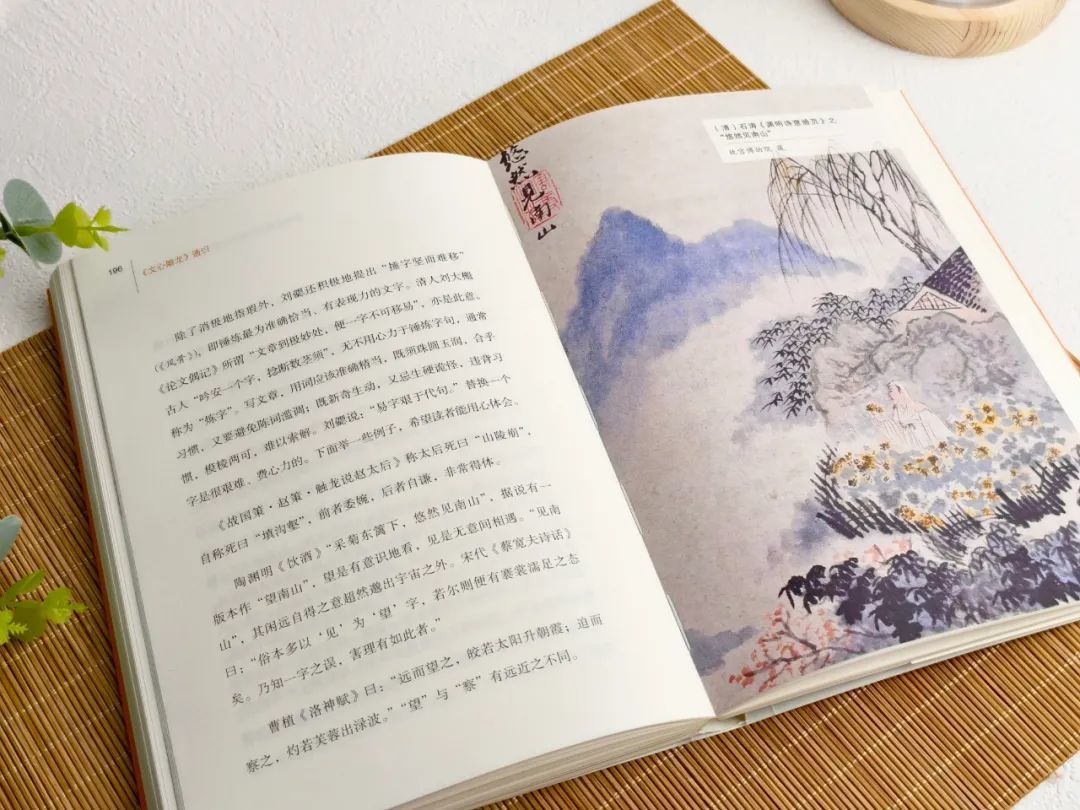 196
《文心雕龙》通识
除了消极地指瑕外，刘勰还积极地提出“捶字坚而难移”
（《风骨》），即锤炼最为准确恰当、有表现力的文字。清人刘大櫆
《论文偶记》所谓“文章到极妙处，便一字不可移易”，亦是此意。
古人“吟安一个字，捻断数茎须”，无不用心力于锤炼字句，通常
称为“炼字”。写文章，用词应该准确精当，既须珠圆玉润，合乎
习惯，又要避免陈词滥调；既新奇生动，又忌生硬诡怪，违背习
惯，模棱两可，难以索解。刘勰说：“易字艰于代句。”替换一个
字是很艰难、费心力的。下面举一些例子，希望读者能用心体会。
《战国策·赵策·触龙说赵太后》称太后死曰“山陵崩”，
自称死曰“填沟壑”，前者委婉，后者自谦，非常得体。
陶渊明《饮酒》“采菊东篱下，悠然见南山”，据说有一
版本作“望南山”，望是有意识地看，见是无意间相遇。“见南
山”，其闲远自得之意超然邈出宇宙之外。宋代《蔡宽夫诗话》
曰：“俗本多以‘见’为‘望’字，若尔则便有褰裳濡足之态
矣。乃知一字之误，害理有如此者。”
曹植《洛神赋》曰：“远而望之，皎若太阳升朝霞；迫而
察之，灼若芙蓉出渌波。”“望”与“察”有远近之不同。
（清）石涛《渊明诗意册页》之
“悠然见南山”
故宫博物院 藏
悠然见南山